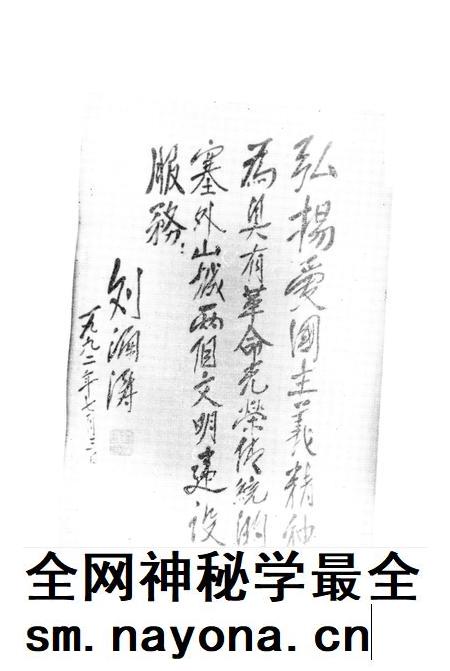 弘揚爱國主義精神
為具有革命光榮传統的
塞外山城两個文明建设
服務：
刘澜涛
一九九二年七月三日
全网神秘学最全
sm.nayona.cn